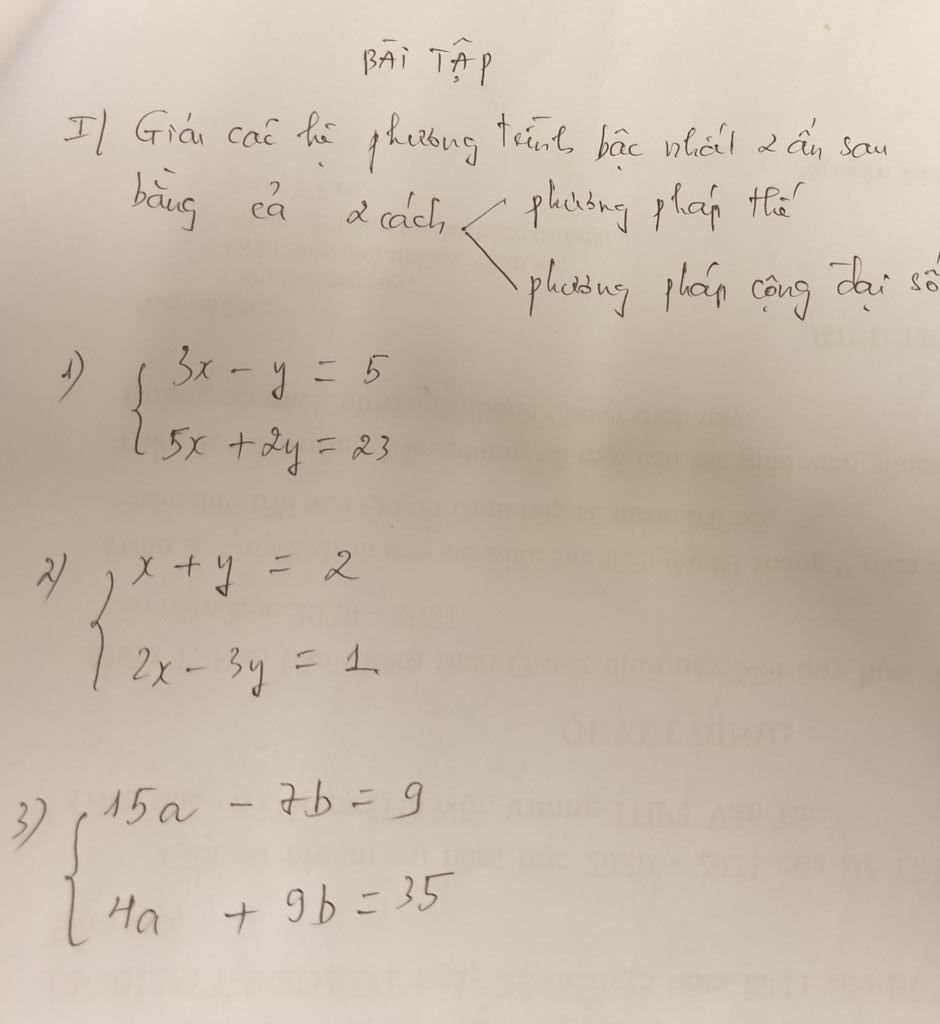 BÀI TẬP
I/ Giải các hệ phương trình bậc nhất 2 ẩn sau
bằng cả 2 cách phương pháp thế
phương pháp cộng đại số
1) { 3x - y = 5
5x + 2y = 23
2) { x + y = 2
2x - 3y = 1
3) { 15a - 7b = 9
4a + 9b = 35